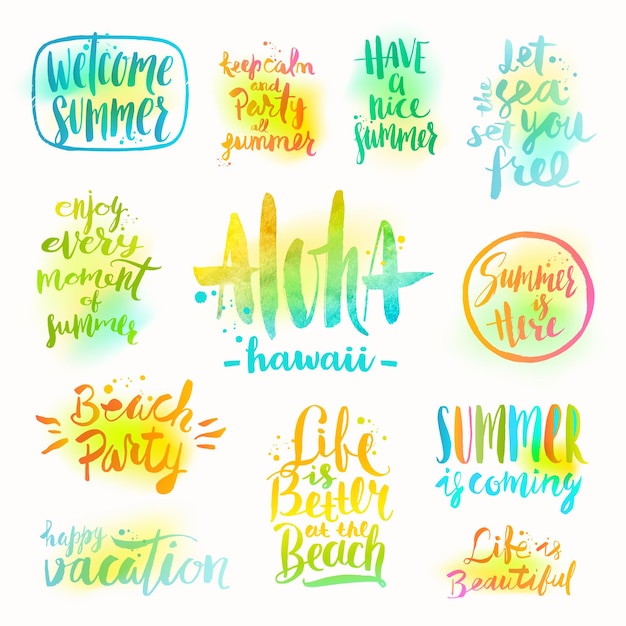 Welcome
Summer
keep calm
and
Party
all
summer
HAVE
a
nice
summer
Let
the sea
set you
free
enjoy
every
moment
of
summer
Aloha
-hawaii-
Summer
is
Here
Beach
Party
Life
is
Better
at the
Beach
SUMMER
is coming
happy
vacation
Life is
Beautiful